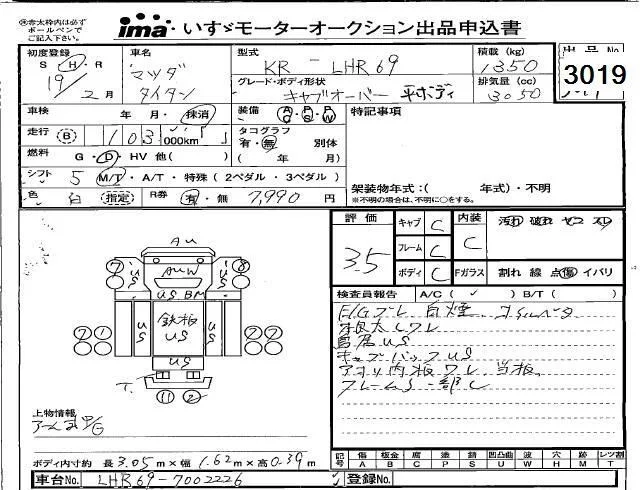 ㊟赤太枠内は必ず
ボールペンで
ご記入下さい。
ima いすゞモーターオークション出品申込書
初度登録 車名 型式 積載(kg) 出品No
S H・R マツダ KR-LHR69 1350
3019
19年2月 タイタン グレード・ボディ形状 排気量(cc)
キャブオーバー 平ボディ 3050
車検 年 月・抹消 装備 AC・PS・PW 特記事項
走行 B 103 000km タコグラフ
有・無 別体
燃料 G・D・HV 他( ) ( 年 月)
シフト 5 M/T・A/T・特殊(2ペダル・3ペダル)
架装物年式:( 年式)・不明
色 白 指定 R券 有・無 7,990円
※不明の場合は、不明に○をする。
評価 キャブ C 内装 汚れ 破れ
3.5 フレーム C C
ボディ C Fガラス 割れ 線 点 傷 イバリ
検査員報告 A/C( ✓ ) B/T( )
AU
7 AUW 8
US US
US BM
US 鉄板 US US
7 7
US
T.
11 2
E/Gブレ 白煙 オイルベタ
根太しワレ
鳥居US
キャブバックUS
アオリ内板ワレ 当板
フレームS 一部C
上物情報
ボディ内寸約 長3.05m×幅1.62m×高0.39m
記号 傷 A 板金 B 腐 C 塗 P 錆 S 凹凸曲 U 波 W 穴 H 跡 M レツ割 T
車台No. LHR69-7002226 登録No.